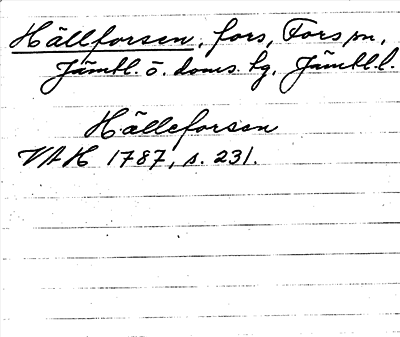 Hällforsen, fors, Fors sn,
Jämtl. ö. doms. tg, Jämtl. l.
Hälleforsen
VAH 1787, s. 231.